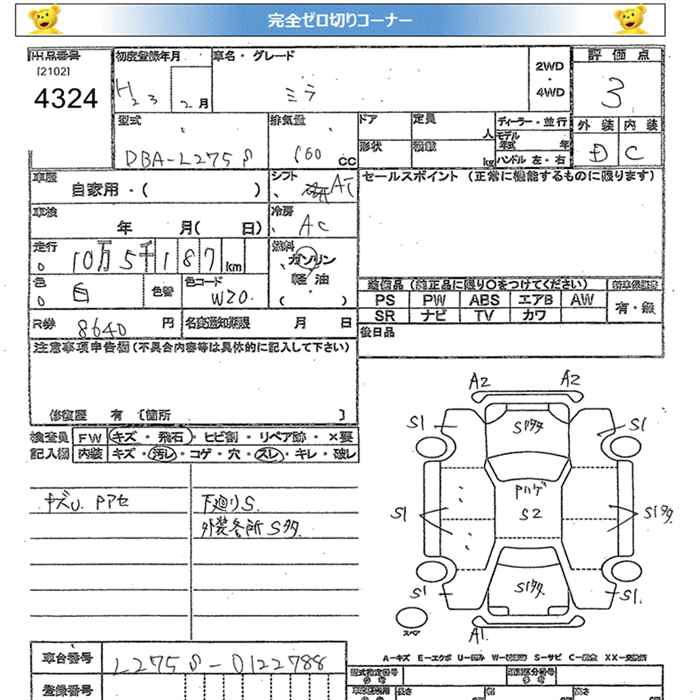 完全ゼロ切りコーナー
出品番号 初度登録年月 車名・グレード 2WD・4WD 評価点
[2102]
4324 H23 2月 ミラ 3
型式 排気量 ドア 定員 人 ディーラー・並行 外装 内装
DBA-L275S 660 cc 形状 kg モデル年式 年 ハンドル 左・右 D C
車歴 自家用・( ) シフト AT セールスポイント(正常に機能するものに限ります)
車検 年 月( 日) 冷房 AC
走行 10万5千187km 燃料 ガソリン
軽油
色 白 色替 色コード W20. ( ) 装備品(純正品に限り○をつけてください)
PS PW ABS エアB AW 有・無
R券 8640円 名変通知期限 月 日 SR ナビ TV カワ
注意事項申告欄(不具合内容等は具体的に記入して下さい) 後日品
修復歴 有 〔箇所 〕
検査員 FW キズ・飛石・ヒビ割・リペア跡・×要
記入欄 内装 キズ・汚レ・コゲ・穴・スレ・キレ・破レ
キズU. Pアセ 下廻りS.
外装各所Sタ
A2 A2
S1 Sワタ S1
Pハゲ
S1 S2 S1タ
S1. Sワタ S1.
スペア A1.
A-キズ E-エクボ S-サビ XX-交換済
車台番号 L275S-0122788
登録番号